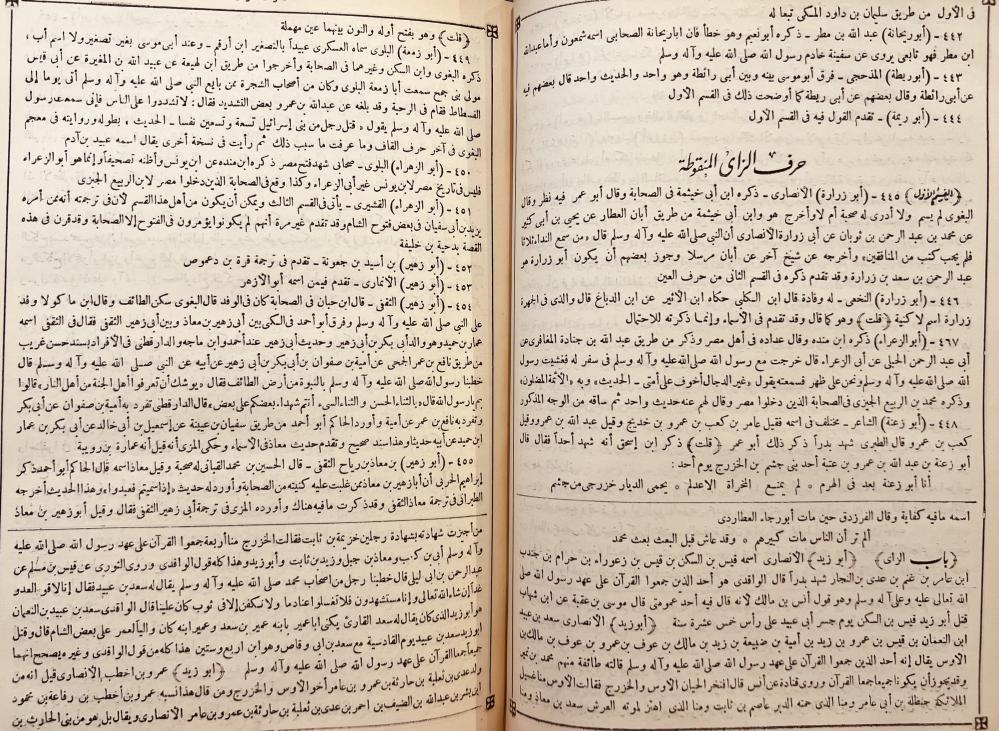 فى الأول من طريق سليمان بن داود المكى تبعا له
٤٤٢ - (أبو ريحانة) عبد الله بن مطر - ذكره أبو نعيم وهو خطأ فان أبا ريحانة الصحابى اسمه شمعون وأما عبد الله
ابن مطر فهو تابعى يروى عن سفينة خادم رسول الله صلى الله عليه وآله وسلم
٤٤٣ - (أبو ريطة) المذحجى - فرق أبو موسى بينه وبين أبى رائطة وهو واحد والحديث واحد قال بعضهم فيه
عن أبى رائطة وقال بعضهم عن أبى ريطة كما أوضحت ذلك فى القسم الأول
٤٤٤ - (أبو ريمة) - تقدم القول فيه فى القسم الأول
حرف الزاى المنقوطة
(القسم الأول) ٤٤٥ - (أبو زرارة) الأنصارى - ذكره ابن أبى خيثمة فى الصحابة وقال أبو عمر فيه نظر وقال
البغوى لم يسم ولا أدرى له صحبة أم لا وأخرج هو وابن أبى خيثمة من طريق أبان العطار عن يحيى بن أبى كثير
عن محمد بن عبد الرحمن بن ثوبان عن أبى زرارة الأنصارى أن النبى صلى الله عليه وآله وسلم قال «من سمع النداء ثلاثا
فلم يجب كتب من المنافقين» وأخرجه عن شيخ آخر عن أبان مرسلا وجوز بعضهم أن يكون أبو زرارة هو
عبد الرحمن بن سعد بن زرارة وقد تقدم ذكره فى القسم الثانى من حرف العين
٤٤٦ - (أبو زرارة) النخعى - له وفادة قال ابن الكلبى حكاه ابن الأثير عن ابن الدباغ قال والذى فى الجهرة
زرارة اسم لا كنية (قلت) وهو كما قال وقد تقدم فى الأسماء وإنما ذكرته للاحتمال
٤٦٧ - (أبو الزعراء) ذكره ابن منده وقال عداده فى أهل مصر وذكر من طريق عبد الله بن جنادة المعافرى عن
أبى عبد الرحمن الحبلى عن أبى الزعراء قال خرجت مع رسول الله صلى الله عليه وآله وسلم فى سفر له فغشيت رسول
الله صلى الله عليه وآله وسلم ونحن على ظهر فسمعته يقول «غير الدجال أخوف على أمتى - الحديث، وبه «الأئمة المضلون»
وذكره محمد بن الربيع الجيزى فى الصحابة الذين دخلوا مصر وقال لهم عنه حديث واحد ثم ساقه من الوجه المذكور
٤٤٨ - (أبو زعنة) الشاعر - مختلف فى اسمه فقيل عامر بن كعب بن عمرو بن خديج وقيل عبد الله بن عمرو وقيل
كعب بن عمرو قال الطبرى شهد بدراً ذكر ذلك أبو عمر (قلت) ذكر ابن إسحق أنه شهد أحداً فقال قال
أبو زعنة بن عبد الله بن عمرو بن عتبة أحد بنى جشم بن الخزرج يوم أحد :
أنا أبو زعنة يعد فى الهرم * لم يمنع المخزاة الا عد لم * يحمى الديار خزرجى من جشم
اسمه مافيه كفاية وقال الفرزدق حين مات أبو رجاء العطاردى
ألم تر أن الناس مات كبيرهم * وقد عاش قبل البعث بعث محمد
(باب الزاى) (أبو زيد) الانصارى اسمه قيس بن السكن بن قيس بن زعوراء بن حرام بن جندب
ابن عامر بن غنم بن عدى بن النجار شهد بدراً قال الواقدى هو أحد الذين جمعوا القرآن على عهد رسول الله صلى
الله تعالى عليه وعلى آله وسلم وهو قول أنس بن مالك لانه قال فيه أحد عمومتى قال موسى بن عقبة عن ابن شهاب
قتل أبو زيد قيس بن السكن يوم جسر أبى عبيد على رأس خمس عشرة سنة (أبو زيد) الأنصارى سعد بن عبيد
ابن النعمان بن قيس بن عمرو بن زيد بن أمية بن ضبيعة بن زيد بن مالك بن عوف بن عمرو بن عوف بن مالك بن
الاوس يقال إنه أحد الذين جمعوا القرآن على عهد رسول الله صلى الله عليه وآله وسلم قالته طائفة منهم محمد بن نمير
وقد يجوز أن يكونا جميعا جمعا القرآن وروى قتادة عن أنس قال افتخر الحيان الاوس والخزرج فقالت الاوس منا غسيل
الملائكة حنظلة بن أبى عامر ومنا الذى حمته الدبر عاصم بن ثابت ومنا الذى اهتز لموته العرش سعد بن معاذ ومنا
(قلت) وهو بفتح أوله والنون بينهما عين مهملة
٤٤٩ - (أبو زمعة) البلوى سماه العسكرى عبيداً بالتصغير ابن أرقم - وعند أبى موسى بغير تصغير ولا اسم أب،
ذكره البغوى وابن السكن وغيرهما فى الصحابة وأخرجوا من طريق ابن لهيعة عن عبيد الله بن المغيرة عن أبى قيس
مولى بنى جمح سمعت أبا زمعة البلوى وكان من أصحاب الشجرة ممن بايع النبى صلى الله عليه وآله وسلم أتى يوما إلى
الفسطاط فقام فى الرحبة وقد بلغه عن عبد الله بن عمرو بعض التشديد فقال : لا تشددوا على الناس فإنى سمعت رسول
صلى الله عليه وآله وسلم يقول «قتل رجل من بنى إسرائيل تسعة وتسعين نفسا - الحديث، بطوله وروايته فى معجم
البغوى فى آخر حرف القاف وما عرفت ما سبب ذلك ثم رأيت فى نسخة أخرى يقال اسمه عبيد بن آدم
٤٥٠ - (أبو الزهراء) البلوى - صحابى شهد فتح مصر ذكره ابن منده عن ابن يونس وأظنه تصحيفاً وإنما هو أبو الزعراء
فليس فى تاريخ مصر لابن يونس غير أبى الزعراء وكذا وقع فى الصحابة الذين دخلوا مصر لابن الربيع الجيزى
٤٥١ - (أبو الزهراء) القشيرى - يأتى فى القسم الثالث ويمكن أن يكون من أهل هذا القسم لان فى ترجمته أنه ممن أمره
يزيد بن أبى سفيان فى بعض فتوح الشام وقد تقدم غير مرة أنهم لم يكونوا يؤمرون فى الفتوح إلا الصحابة وقد قرن فى هذه
القصة بدحية بن خليفة
٤٥٢ - (أبو زهير) بن أسيد بن جعونة - تقدم فى ترجمة قرة بن دعموص
٤٥٣ - (أبو زهير) الأنمارى - تقدم فيمن اسمه أبو الأزهر
٤٥٤ - (أبو زهير) الثقفى - قال ابن حبان فى الصحابة كان فى الوفد قال البغوى سكن الطائف وقال ابن ماكولا وفد
على النبى صلى الله عليه وآله وسلم وفرق أبو أحمد فى الكنى بين أبى زهير بن معاذ وبين أبى زهير الثقفى فقال فى الثقفى اسمه
عمار بن حميد وهو والد أبى بكر بن أبى زهير وحديث أبى زهير عند أحمد وابن ماجه والدارقطنى فى الأفراد بسند حسن غريب
من طريق نافع بن عمر الجمحى عن أمية بن صفوان بن أبى بكر بن أبى زهير عن أبيه عن النبى صلى الله عليه وآله وسلم قال
خطبنا رسول الله صلى الله عليه وآله وسلم بالنبوة من أرض الطائف فقال «يوشك أن تعرفوا أهل الجنة من أهل النار» قالوا
بم يا رسول الله قال «بالثناء الحسن والثناء السىء أنتم شهداء، بعضكم على بعض» قال الدارقطنى تفرد به أمية بن صفوان عن أبى بكر
وتفرد به نافع بن عمر عن أمية وأورد الحاكم أبو أحمد من طريق سفيان بن عيينة عن إسمعيل بن أبى خالد عن أبى بكر بن عمار
ابن حميد عن أبيه حديثا وهذا سند صحيح وتقدم حديث معاذ فى الاسماء وحكى المزى أنه قيل أنه عمارة بن رويبة
٤٥٥ - (أبو زهير) بن معاذ بن رباح الثقفى - قال الحسين بن محمد القبانى له صحبة وقيل معاذ اسمه قال الحاكم أبو أحمد ذكر
إبراهيم الحربى أن أبا زهير بن معاذ ممن غلبت عليه كنيته من الصحابة وأورد له حديث «إذا سميتم فعبدوا» وهذا الحديث أخرجه
الطبرانى فى ترجمة معاذ الثقفى وقد ذكرت مافيه هناك وأورده المزى فى ترجمة أبى زهير الثقفى فقال وقيل أبو زهير بن معاذ
من أجزت شهادته بشهادة رجلين خزيمة بن ثابت فقالت الخزرج منا أربعة جمعوا القرآن على عهد رسول الله صلى الله عليه
وآله وسلم أبى بن كعب ومعاذ بن جبل وزيد بن ثابت وأبو زيد وهذا كله قول الواقدى وروى الثورى عن قيس بن مسلم عن
عبد الرحمن بن أبى ليلى قال خطبنا رجل من أصحاب محمد صلى الله عليه وآله وسلم يقال له سعد بن عبيد فقال إنا لاقو العدو
غداً إن شاء الله تعالى وإنا مستشهدون فلا تغسلوا عنا دما ولا نكفن إلا فى ثوب كان علينا قال الواقدى سعد بن عبيد بن النعمان
هو أبو زيد الذى كان يقال له سعد القارئ يكنى أبا عمير بابنه عمير بن سعد وعمير ابنه كان واليا لعمر على بعض الشام قال وقتل
أبو زيد سعد بن عبيد يوم القادسية مع سعد بن أبى وقاص وهو ابن أربع وستين هذا كله من قول الواقدى وغيره يصحح أنهما
جميعا جمعا القرآن على عهد رسول الله صلى الله عليه وآله وسلم (أبو زيد) عمرو بن أخطب الانصارى قيل انه من
ولد عدى بن ثعلبة بن حارثة بن عمرو بن عامر أخو الاوس والخزرج ومن قال هذا نسبه عمرو بن أخطب بن رفاعة بن محمود
ابن بشر بن عبد الله بن الضيف بن احمر بن عدى بن ثعلبة بن حارثة بن عمرو بن عامر الانصارى ويقال بل هو من بنى الحارث بن